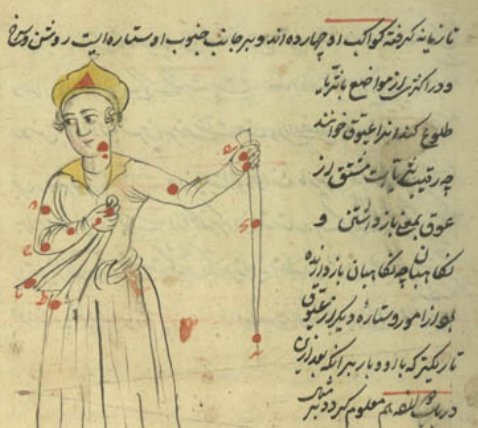 تازیانه گرفته کواکب او چهارده اند و بر جانب جنوب او ستاره ایست روشن و سرخ
و در اکثری از مواضع با ثریا
طلوع کند و انرا عیوق خوانند
چه رقیب ثریاست مشتق از
عوق بمعنی باز داشتن و
نگاهبان چه نگاهبان باز دارنده
بود از امور و ستاره دیگر از عیوق
تاریکتر که با او و بار بر آنکه بعد ازین
در باب هم معلوم کردد بر